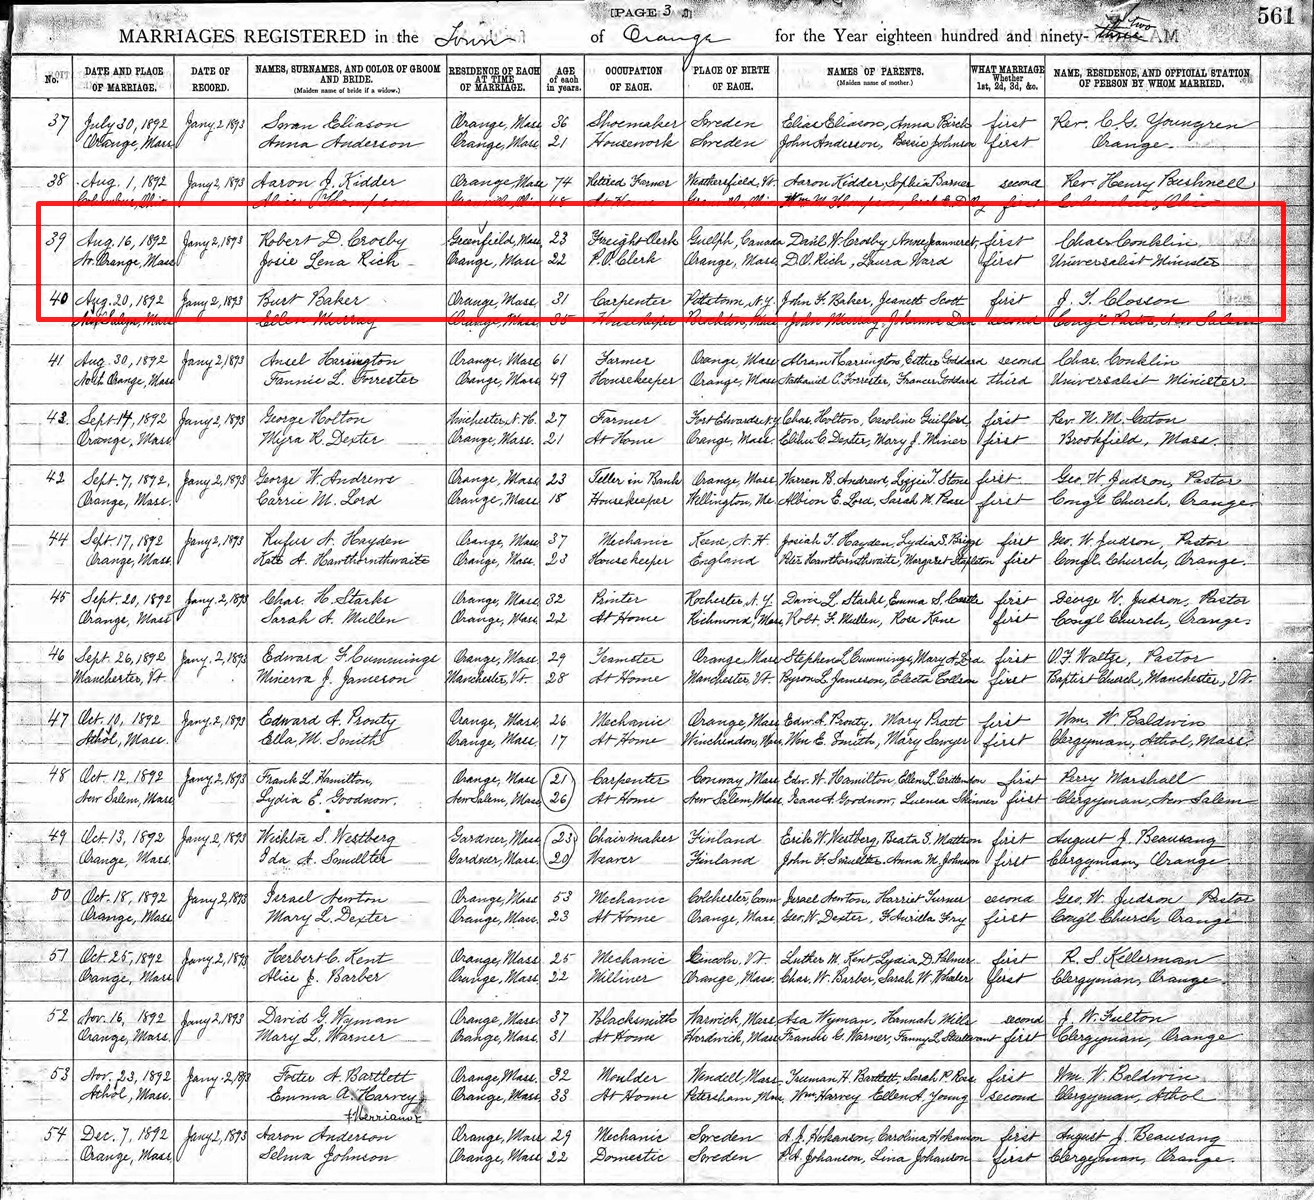 [PAGE 3]
561
MARRIAGES REGISTERED in the Town of Orange for the Year eighteen hundred and ninety- two
No. DATE AND PLACE OF MARRIAGE. DATE OF RECORD. NAMES, SURNAMES, AND COLOR OF GROOM AND BRIDE. (Maiden name of bride if a widow.) RESIDENCE OF EACH AT TIME OF MARRIAGE. AGE of each in years. OCCUPATION OF EACH. PLACE OF BIRTH OF EACH. NAMES OF PARENTS. (Maiden name of mother.) WHAT MARRIAGE Whether 1st, 2d, 3d, &c. NAME, RESIDENCE, AND OFFICIAL STATION OF PERSON BY WHOM MARRIED.
37 July 30, 1892 Jany 2, 1893 Swan Eliason Orange, Mass 36 Shoemaker Sweden Elias Eliason, Anna Birch first Rev. C. G. Youngren
Orange, Mass Anna Anderson Orange, Mass 21 Housework Sweden John Anderson, Bessie Johnson first Orange.
38 Aug. 1, 1892 Jany 2, 1893 Aaron J. Kidder Orange Mass 74 Retired Farmer Weathersfield, Vt. Aaron Kidder, Sophia Barner second Rev. Henry Bushnell
Columbus, Ohio Alice Thompson 48 At Home first Columbus, Ohio
39 Aug. 16, 1892 Jany 2, 1893 Robert D. Crosby Greenfield, Mass 23 Freight Clerk Guelph, Canada Danl W. Crosby, Anne Jeanneret first Chas Conklin
No. Orange, Mass Josie Lena Rich Orange, Mass 22 P.O. Clerk Orange, Mass D.O. Rich, Laura Ward first Universalist Minister
40 Aug. 20, 1892 Jany 2, 1893 Burt Baker Orange, Mass 31 Carpenter Pittstown, N.Y. John F. Baker, Jeanett Scott first J. T. Closson
New Salem, Mass Ellen Murray Orange, Mass 35 Housekeeper Brockton, Mass John Murray, Johanna second Cong'l Pastor, New Salem
41 Aug. 30, 1892 Jany 2, 1893 Ansel Harrington Orange, Mass 61 Farmer Orange, Mass Abram Harrington, Esther Goddard second Chas. Conklin
North Orange, Mass Fannie L. Forrester Orange, Mass 49 Housekeeper Orange, Mass Nathaniel C. Forrester, Frances Goddard third Universalist Minister.
43 Sept. 14, 1892 Jany 2, 1893 George Holton Winchester, N.H. 27 Farmer Fort Edwards N.Y. Chas. Holton, Caroline Guilford first Rev. N. M.
Orange, Mass Myra R. Dexter Orange, Mass. 21 At Home Orange, Mass. Elihu C. Dexter, Mary J. Miner first Brookfield, Mass.
42 Sept. 7, 1892 Jany 2, 1893 George W. Andrews Orange, Mass. 23 Teller in Bank Orange, Mass Warren B. Andrews, Lizzie T. Stone first Geo. W. Judson, Pastor
Orange, Mass. Carrie M. Lord Orange, Mass. 18 Housekeeper Wellington, Me Albion E. Lord, Sarah M. Pease first Congl Church, Orange.
44 Sept. 17, 1892 Jany 2, 1893 Rufus N. Hayden Orange, Mass. 37 Mechanic Keene, N.H Josiah T. Hayden, Lydia S. Briggs first Geo. W. Judson, Pastor
Orange, Mass. Kate A. Hawthornthwaite Orange, Mass. 23 Housekeeper England Peter Hawthornthwaite, Margaret Stapleton first Congl. Church, Orange.
45 Sept. 20, 1892 Jany. 2, 1893 Chas. H. Starks Orange, Mass 32 Printer Rochester, N.Y. David L. Starks, Emma S. Castle first George W. Judson, Pastor
Orange, Mass Sarah A. Mullen Orange, Mass. 22 At Home Richmond, Mass Robt. F. Mullen, Rose Kane first Congl Church, Orange.
46 Sept. 26, 1892 Jany. 2, 1893 Edward F. Cummings Orange, Mass. 29 Teamster Orange, Mass Stephen L. Cummings, Mary A. Lord first O. F. Waltze, Pastor
Manchester, Vt. Minerva J. Jameson Manchester, Vt. 28 At Home Manchester, Vt. Byron L. Jameson, Electa first Baptist Church, Manchester, Vt.
47 Oct. 10, 1892 Jany 2, 1893 Edward A. Prouty Orange, Mass. 26 Mechanic Orange, Mass Edw. A. Prouty, Mary Pratt first Wm. W. Baldwin
Athol, Mass. Ella M. Smith Orange, Mass. 17 At Home Winchendon, Mass Wm E. Smith, Mary Sawyer first Clergyman, Athol, Mass.
48 Oct. 12, 1892 Jany 2, 1893 Frank L. Hamilton, Orange, Mass 21 Carpenter Conway, Mass Edw. H. Hamilton, Ellen L. Crittendon first Perry Marshall
New Salem, Mass Lydia E. Goodnow. New Salem, Mass 26 At Home New Salem, Mass. Isaac A. Goodnow, Luensa Skinner first Clergyman, New Salem
49 Oct. 13, 1892 Jany 2, 1893 Wichtor S. Westberg Gardner, Mass 23 Chairmaker Finland Erik W. Westberg, Beata S. Mattson first August J. Beausang
Orange, Mass. Ida A. Smullter Gardner, Mass. 20 Weaver Finland John F. Smullter, Anna M. Johnson first Clergyman, Orange
50 Oct. 18, 1892 Jany 2, 1893 Israel Newton Orange, Mass. 53 Mechanic Colchester, Conn Israel Newton, Harriet Turner second Geo. W. Judson Pastor
Orange, Mass. Mary L. Dexter Orange, Mass. 23 At Home Orange, Mass Geo. N. Dexter, F. Aurilla Fry first Congl Church Orange
51 Oct. 25, 1892 Jany 2, 1893 Herbert C. Kent Orange, Mass 25 Mechanic Lincoln, Vt. Luther M. Kent Lydia D. Palmer first R. S. Kellerman
Orange, Mass. Alice J. Barber Orange, Mass 22 Milliner Orange, Mass. Chas. W. Barber, Sarah W. Whaler first Clergyman, Orange.
52 Nov. 16, 1892 Jany 2, 1893 David G. Wyman Orange, Mass. 37 Blacksmith Warwick, Mass Asa Wyman, Hannah Mills second J. W. Fulton
Orange, Mass. Mary L. Warner Orange, Mass. 31 At Home Hardwick, Mass Francis G. Warner, Fanny L. Sturtevant first Clergyman, Orange
53 Nov. 23, 1892 Jany 2, 1893 Foster A. Bartlett Orange, Mass. 32 Moulder Wendell, Mass. Freeman H. Bartlett, Sarah P. Rose first Wm. W. Baldwin
Athol, Mass. Emma A. Harvey Orange, Mass. 33 At Home Petersham, Mass Wm Harvey Ellen A. Young second Clergyman, Athol
Merriam
54 Dec. 7, 1892 Jany 2, 1893 Aaron Anderson Orange, Mass 29 Mechanic Sweden A. J. Hokanson, Carolina Hokanson first August J. Beausang
Orange, Mass. Selma Johnson Orange, Mass 22 Domestic Sweden P. A. Johanson, Lina Johanson first Clergyman, Orange.